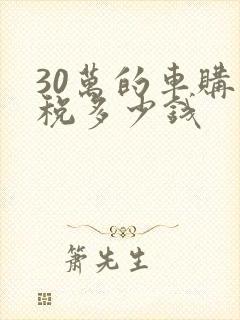 30萬的車購
稅多少錢
簫先生